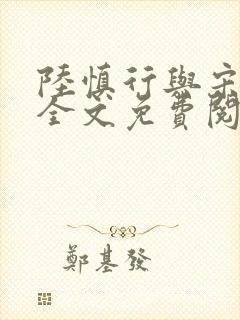 陸慎行與宋
全文免費閱
鄭基發